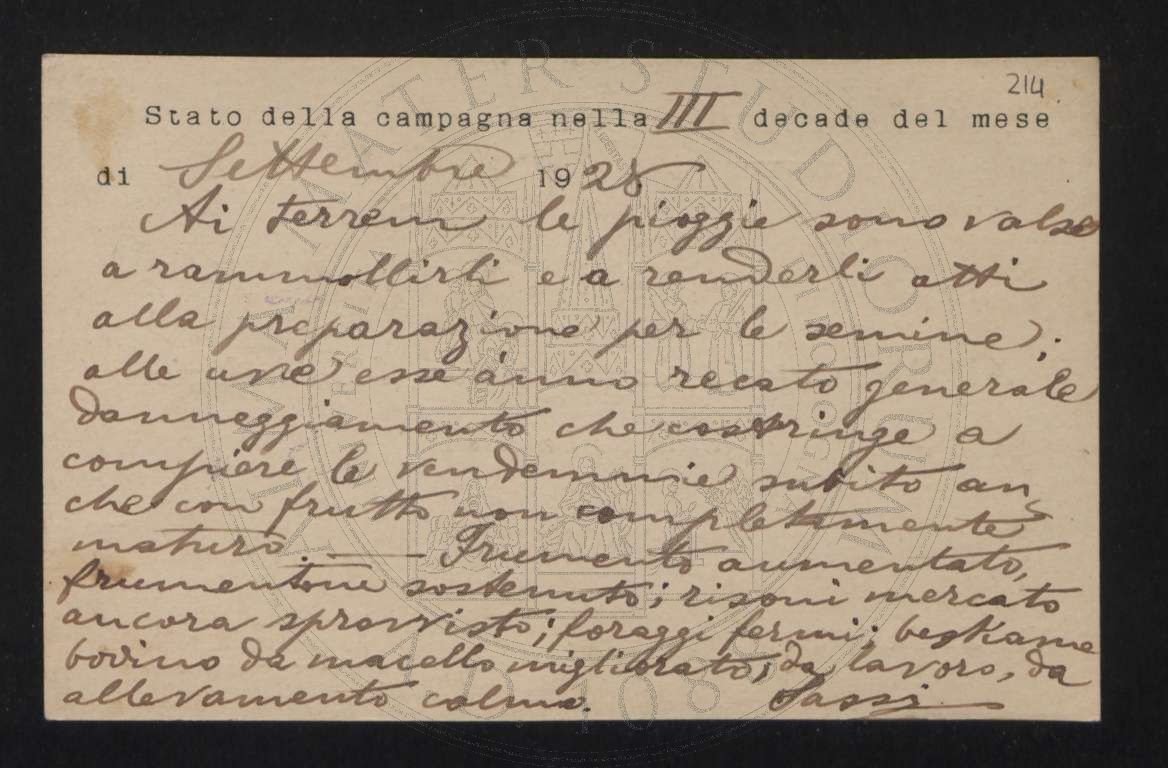 214
Stato della campagna nella III decade del mese
di Settembre 1928
Ai terreni le pioggie sono valse
a rammollirli e a renderli atti
alla preparazione per le semine;
alle uve esse ànno recato generale
danneggiamento che costringe a
compiere le vendemmie subito an
che con frutto non completamente
maturo. — Frumento aumentato,
frumentone sostenuto; risoni mercato
ancora sprovvisto; foraggi fermi; bestiame
bovino da macello migliorato; da lavoro, da
allevamento calmo. Sassi
ALMA MATER STUDIORUM
A.D. 1088